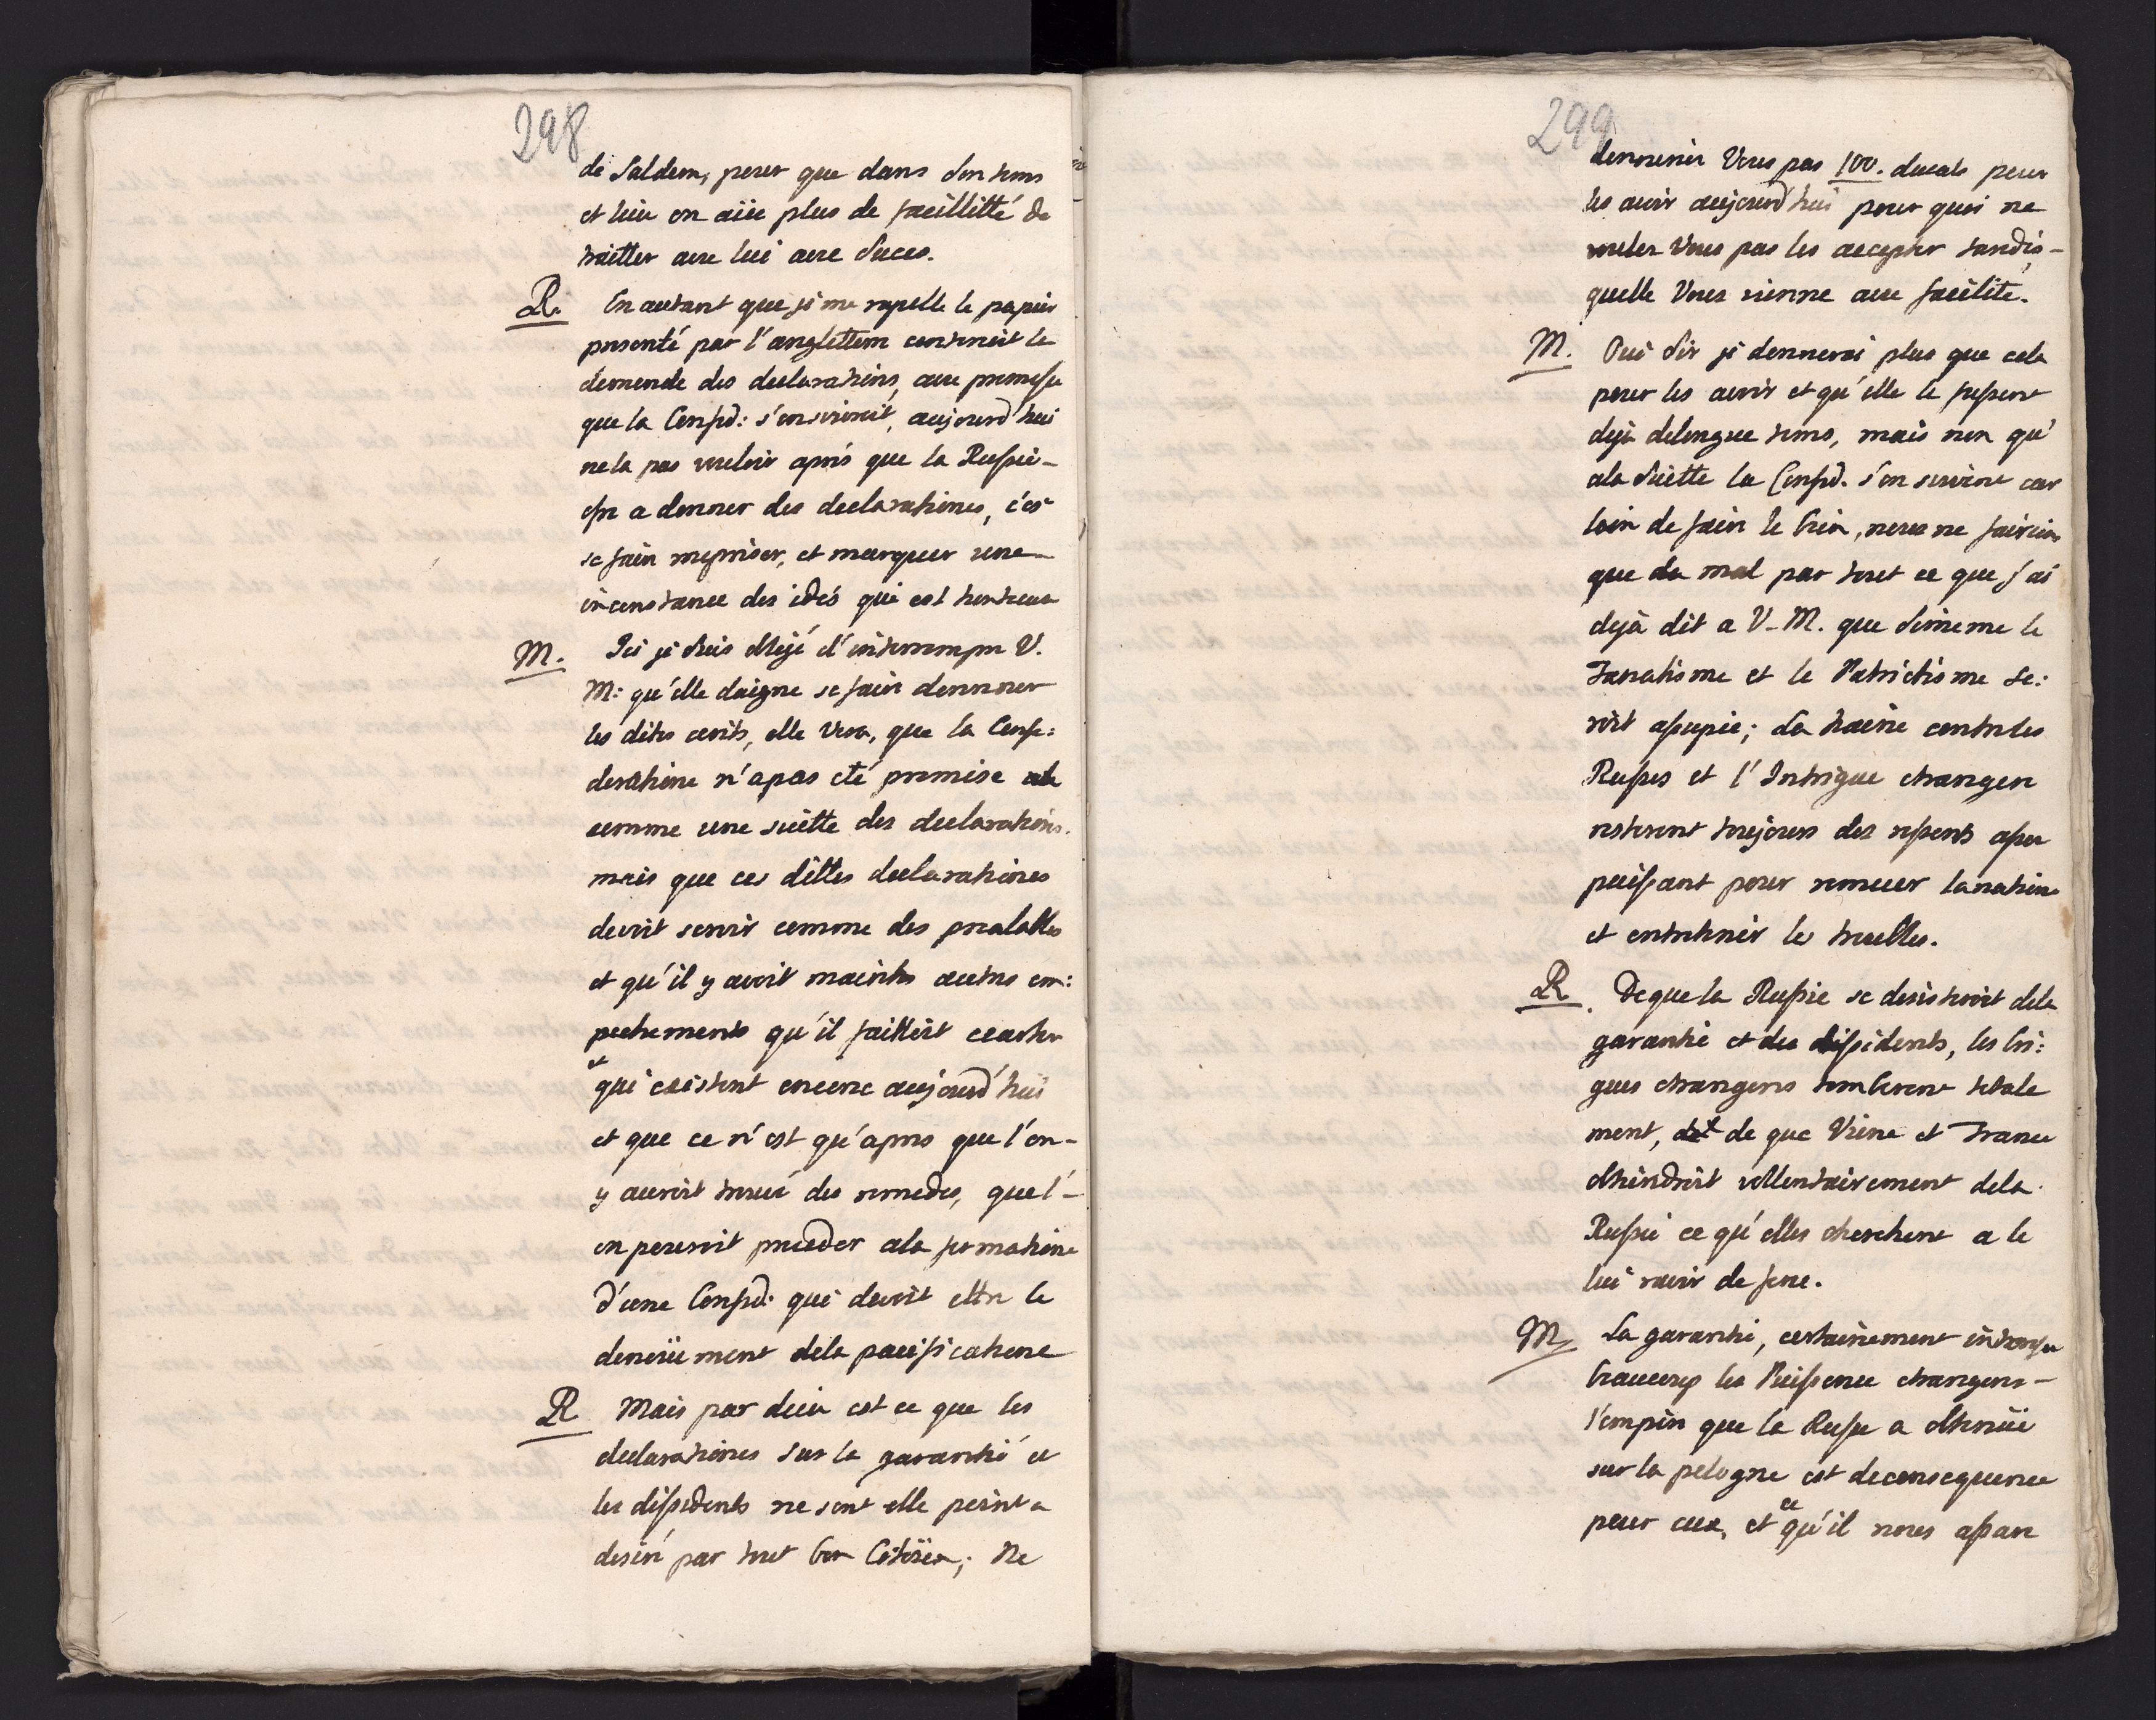 298
de Saldern, pour que dans son tems
et lieu on aïe plus de faecillitté de
traitter avec lui avec succes.
R. En autant que je me rapelle le papier
presenté par l'anglettere contenoit la
demende des declarations, avec promesse
que la Confed: s'ensuivroit, aujourd'hui
ne la pas vouloir aprés que la Russie-
ofre a donner des declarationes, c'es
se faire mepriser, et marquer une
inconstance des idés qui est honteus
M. Ici je suis obligé d'interrompre V.
M: qu'elle daigne se faire donnner
les dites ecrits, elle vera, que la Confe:
deratione n'a pas eté promise
comme une suitte des declarations.
mais que ces dittes declarationes
devoit servir comme des prealables
et qu'il y avoit maints autres em:
pechements qu'il failloit ecarter
et
qui existent encore aujourd'hui
et que ce n'est qu'apres que l'on-
y auroit trouvé des remedes, que l'-
on pouroit proceder a la formatione
d'une Confed: qui devoit ettre le
denoüement dela pacificatione
R Mais par dieu est ce que les
declarationes sur la garantié et
les dissidents ne sont elle point a
desiré par tout bon Citoïen; Ne
299
donnerier Vous pas 100. ducats pour
les avoir aujourd'hui pour quoi ne
vouler Vous pas les accepter tandis-
quelle Vous vienne avec facilité.
M. Oui Sir je donnerai plus que cela
pour les avoir et qu'elle le fussent
dejà delongue tems, mais non qu'
ala suitte la Confed. s'en suivent car
loin de faire le bien, nous ne fairions
que du mal par tout ce que j'ai
dejà dit a V-M. que si meme le
Fanatisme et le Patriotisme se:
roit assupie; La haine contre les
Russes et l'Intrigue etrangere
resteront toujours des resorts assez
puissant pour remuer la natione
et entretenir les troubles.
R. De que la Russie se desisteroit dela
garantie et des dissidents, les bri:
gues etrangeres tomberont totale
ment, de que Viene et France
obtiendroit vollontairement dela
Russie ce qu'elles cherchent a le
lui ravir de force.
M. La garantie, certainement
beaucoup les Puissence etrangers-
l'empire que la Russe a obtenüe
sur la pologne est deconsequence
ce
pour eux, et qu'il nous